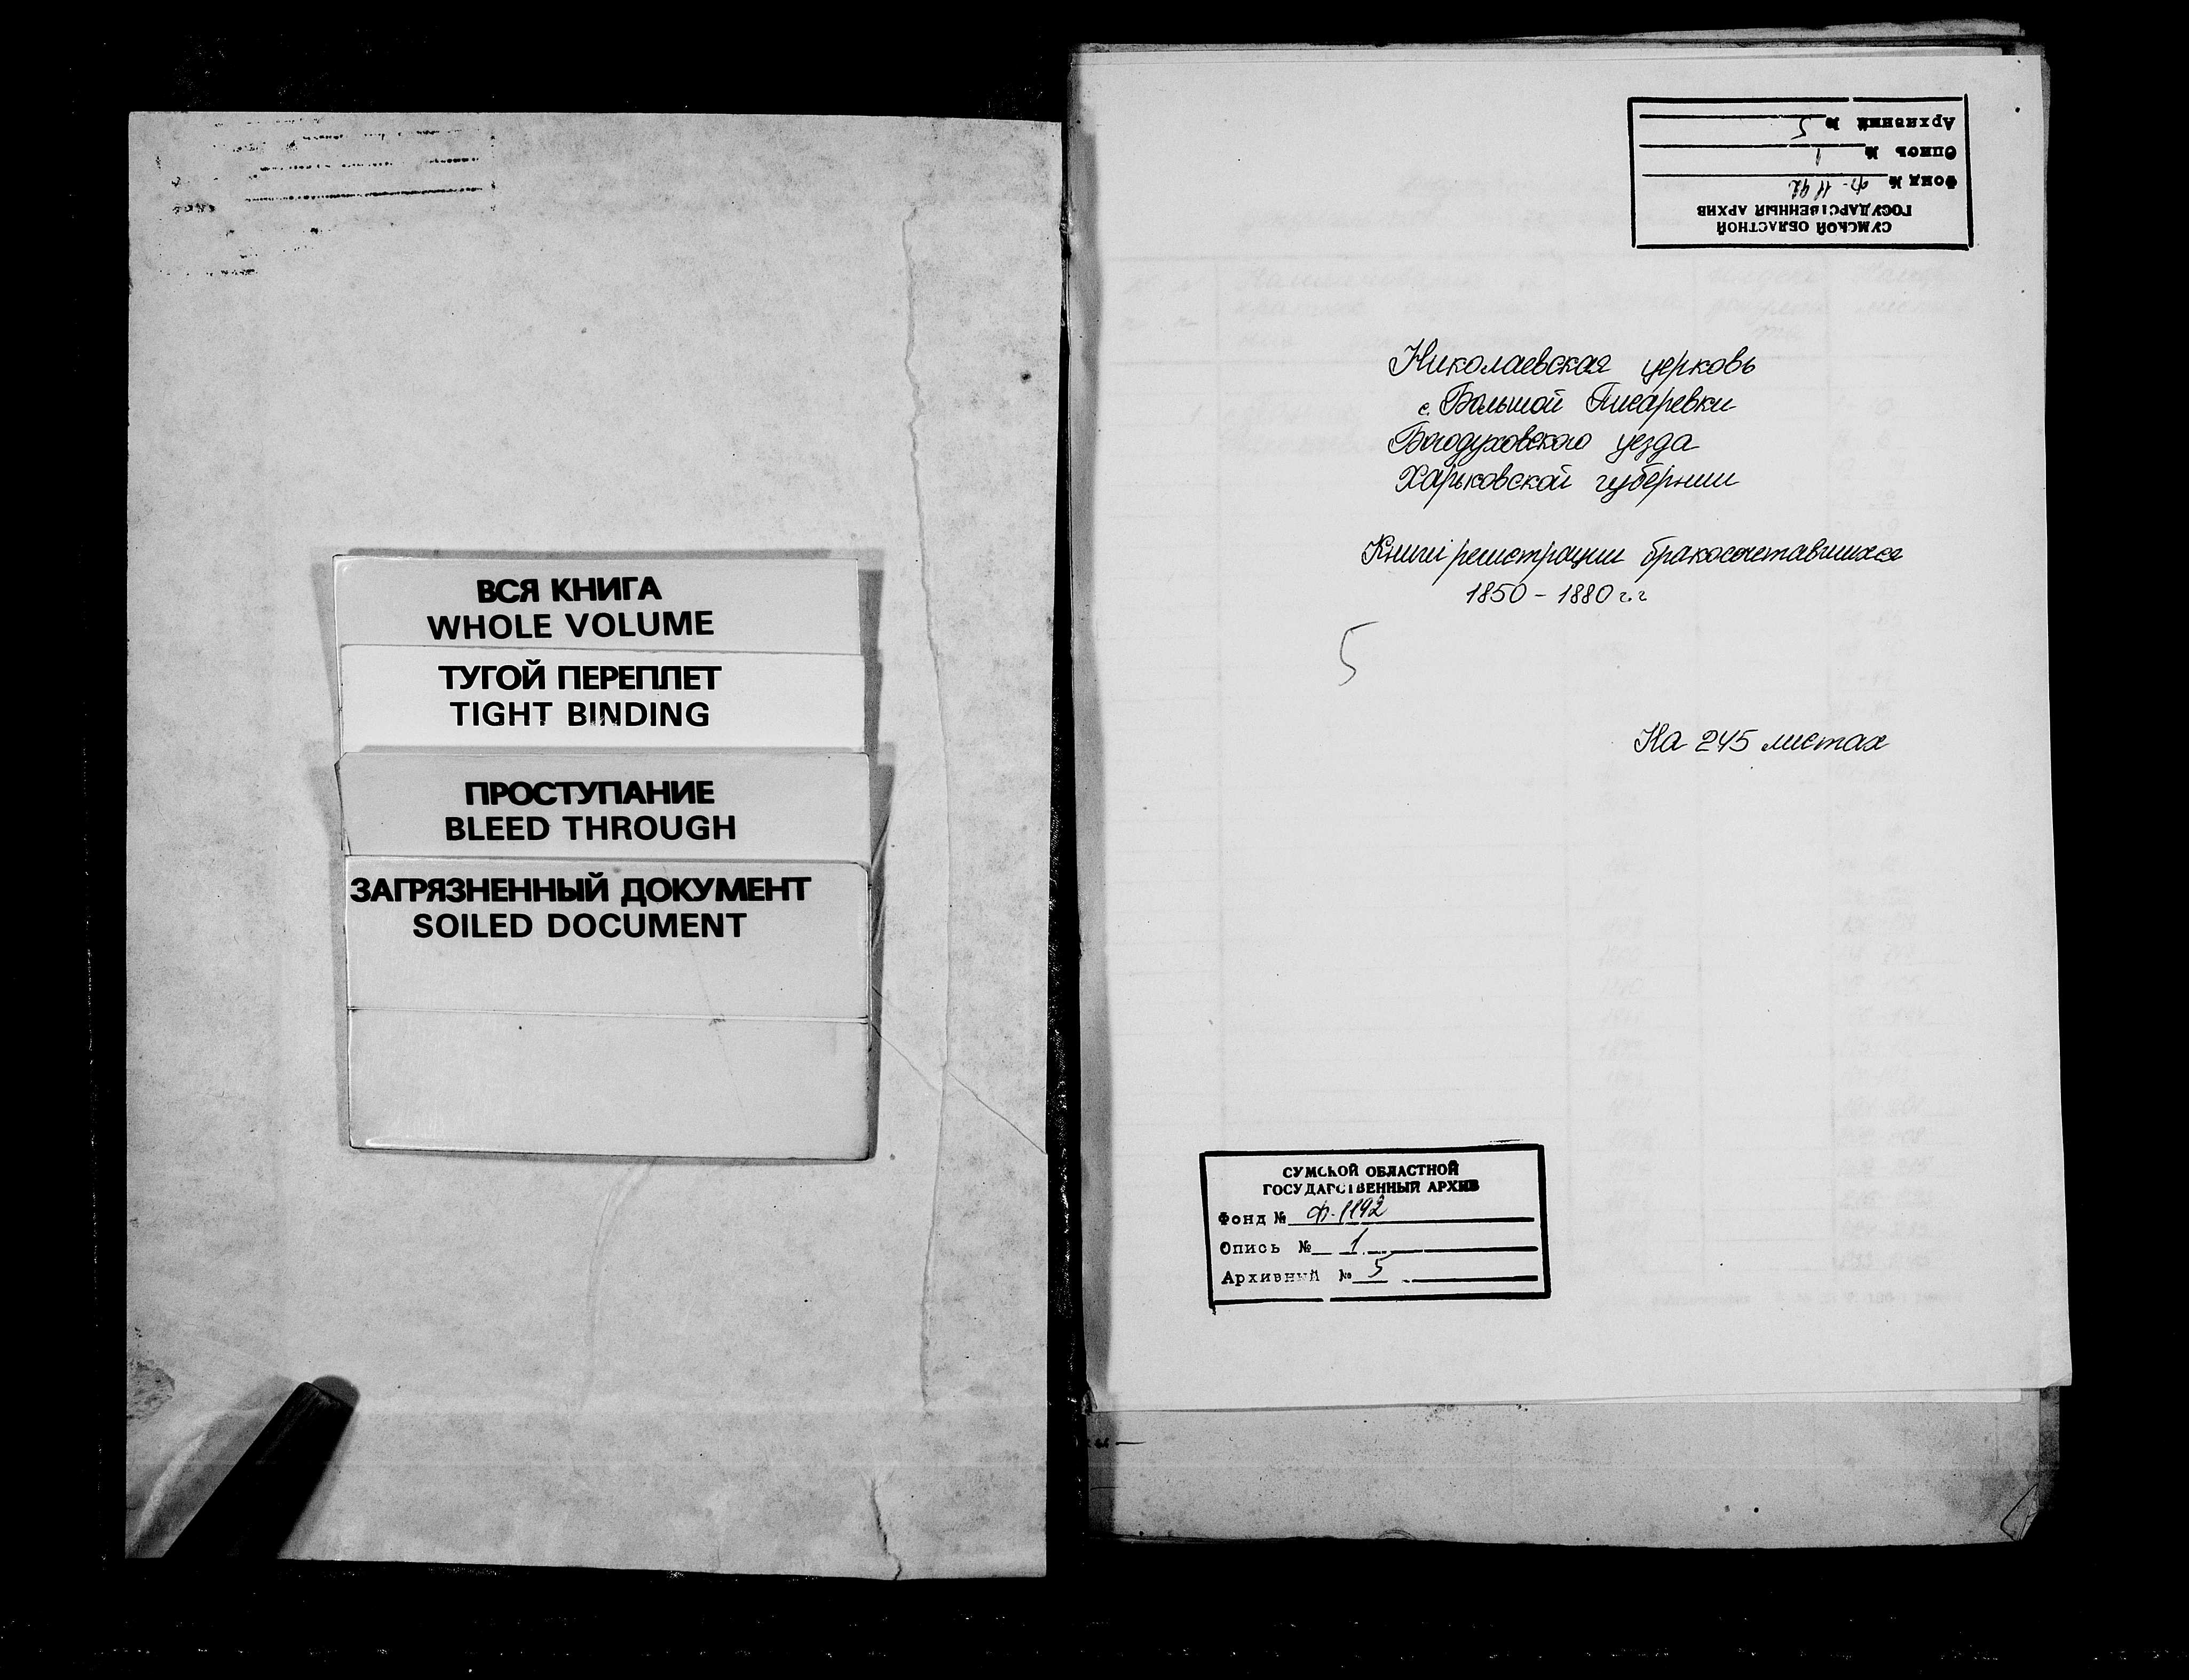 ВСЯ КНИГА
WHOLE VOLUME
ТУГОЙ ПЕРЕПЛЕТ
TIGHT BINDING
ПРОСТУПАНИЕ
BLEED THROUGH
ЗАГРЯЗНЕННЫЙ ДОКУМЕНТ
SOILED DOCUMENT
СУМСКОЙ ОБЛАСТНОЙ
ГОСУДАРСТВЕННЫЙ АРХИВ
Фонд № Ф-1192
Опись № 1
Архивный № 5
Николаевская церковь
с. Большой Писаревки
Богодуховского уезда
Харьковской губернии
Книги регистрации бракосочетавшихся
1850 - 1880 г.г
5
На 245 листах
СУМСКОЙ ОБЛАСТНОЙ
ГОСУДАРСТВЕННЫЙ АРХИВ
Фонд № Ф-1192
Опись № 1
Архивный № 5